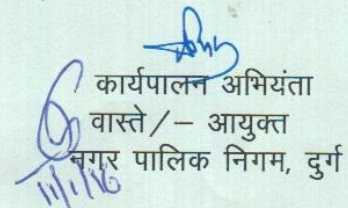 कार्यपालन अभियंता
वास्ते/– आयुक्त
नगर पालिक निगम, दुर्ग
11/1/16